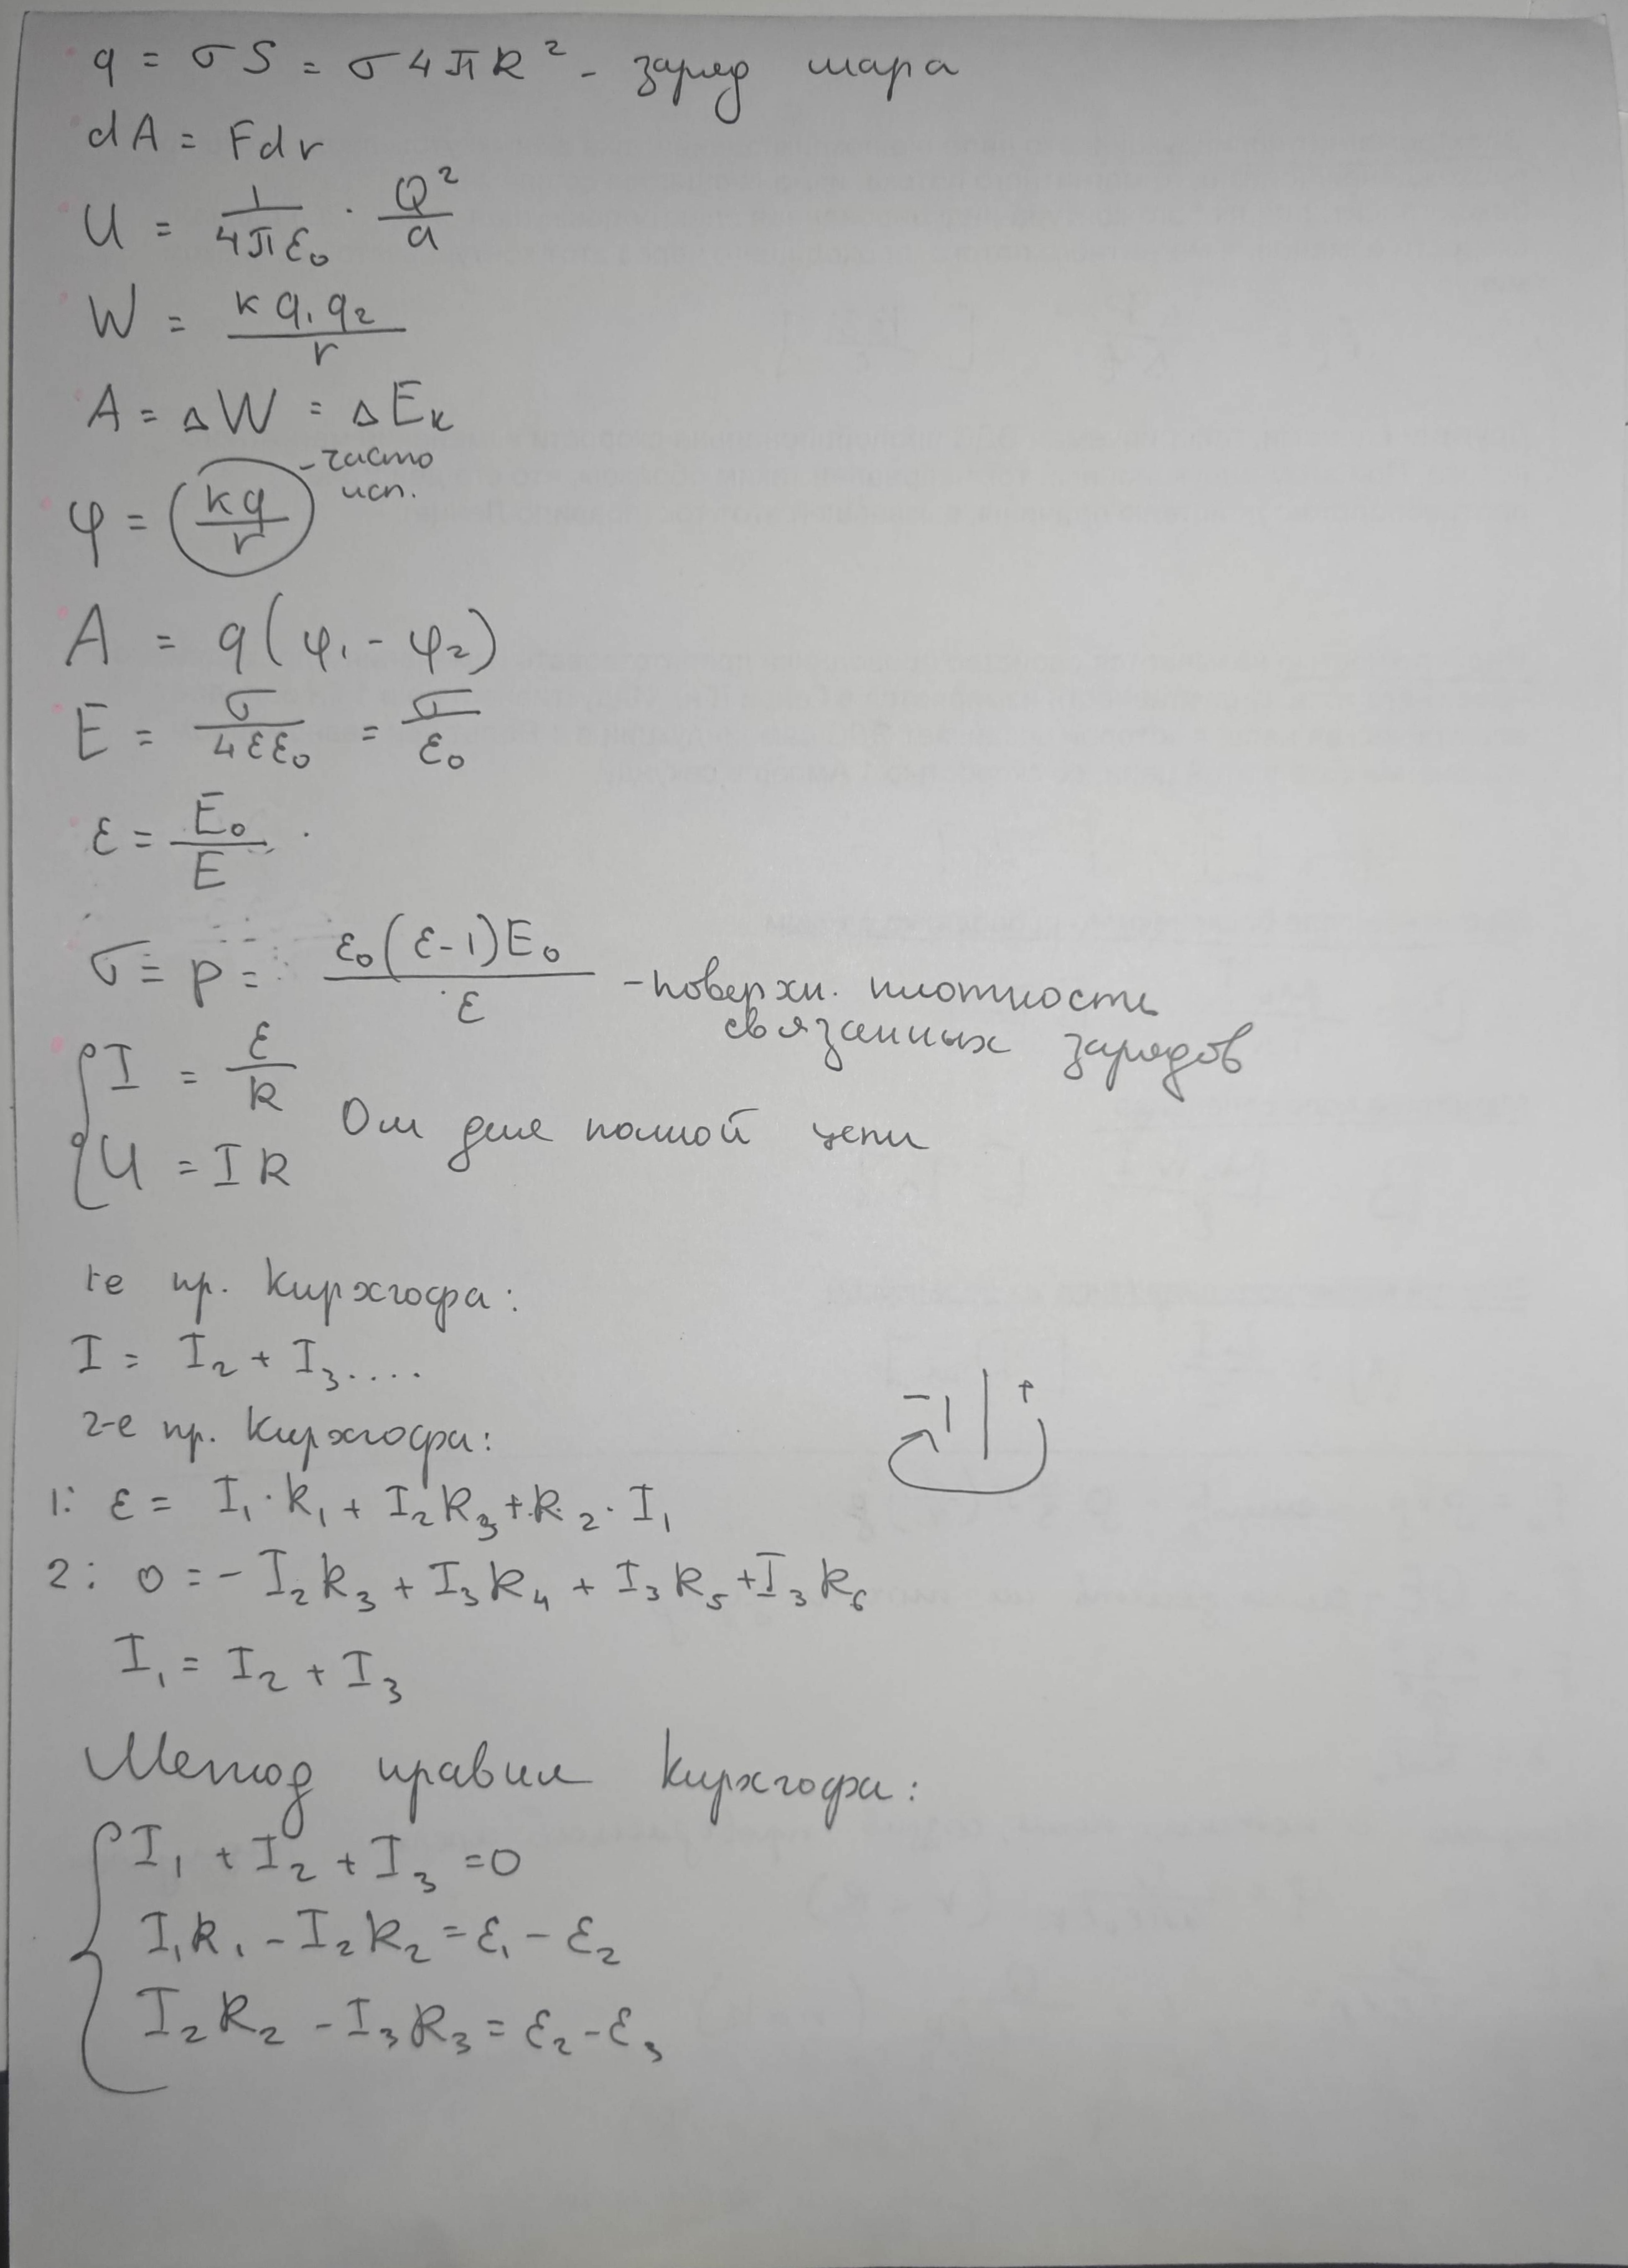 q = σS = σ4πR² - заряд шара
dA = Fdr
U = 1/(4πε₀) · Q²/a
W = kq₁q₂/r
A = ΔW = ΔEк
φ = kq/r - часто
исп.
A = q(φ₁ - φ₂)
E = σ/(4εε₀) = σ/ε₀
ε = E₀/E
σ = p = ε₀(ε-1)E₀/ε - поверхн. плотность
связанных зарядов
I = ε/R
Ом для полной цепи
U = IR
1е пр. Кирхгофа:
I = I₂ + I₃....
- +
2-е пр. Кирхгофа:
1: ε = I₁·R₁ + I₂R₃ + R₂·I₁
2: 0 = - I₂R₃ + I₃R₄ + I₃R₅ + I₃R₆
I₁ = I₂ + I₃
Метод правил Кирхгофа:
I₁ + I₂ + I₃ = 0
I₁R₁ - I₂R₂ = ε₁ - ε₂
I₂R₂ - I₃R₃ = ε₂ - ε₃